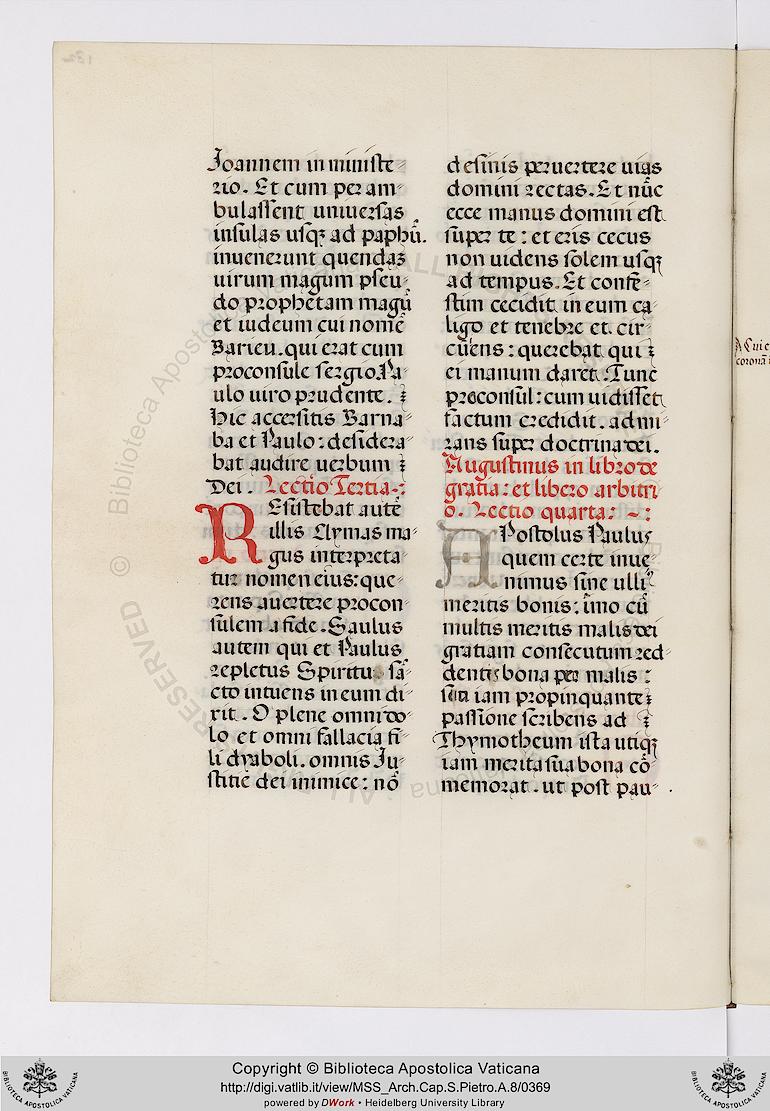 Joannem in ministe-
rio. Et cum per am-
bulassent universas
insulas usqȝ ad paphū.
invenerunt quendaȝ
uirum magum pseu-
do prophetam magū
et iudeum cui nomē
Barieu. qui erat cum
proconsule sergio Pa-
ulo uiro prudente.
Hic accersitis Barna-
ba et Paulo: desidera-
bat audire uerbum
Dei. Lectio Tertia:
REsistebat autē
illis Elymas ma-
gus interpreta-
tur nomen eius: que-
rens auertere procon-
sulem a fide. Saulus
autem qui et Paulus
repletus Spiritu sā-
cto intuens in eum di-
xit. O plene omni do-
lo et omni fallacia fi-
li dyaboli. omnis Ju-
stitie dei inimice: nō
desinis pervertere uias
domini rectas. Et nūc
ecce manus domini est
super te: et eris cecus
non uidens solem usqȝ
ad tempus. Et confe-
stim cecidit in eum ca-
ligo et tenebre et. cir-
cuiens: querebat qui
ei manum daret. Tunc
proconsul: cum uidisset
factum credidit. admi-
rans super doctrina dei.
Augustinus in libro de
gratia: et libero arbitri
o. Lectio quarta:
APostolus Paulus
quem certe inue-
nimus sine ullis
meritis bonis: imo cū
multis meritis malis dei
gratiam consecutum red-
dentis bona per malis:
sua iam propinquante
passione scribens ad
Thymotheum ista utiqȝ
iam merita sua bona cō-
memorat. ut post pau-
A Cui e
coronā i
Copyright © Biblioteca Apostolica Vaticana
http://digi.vatlib.it/view/MSS_Arch.Cap.S.Pietro.A.8/0369
powered by DWork • Heidelberg University Library
BIBLIOTECA APOSTOLICA VATICANA
BIBLIOTECA APOSTOLICA VATICANA